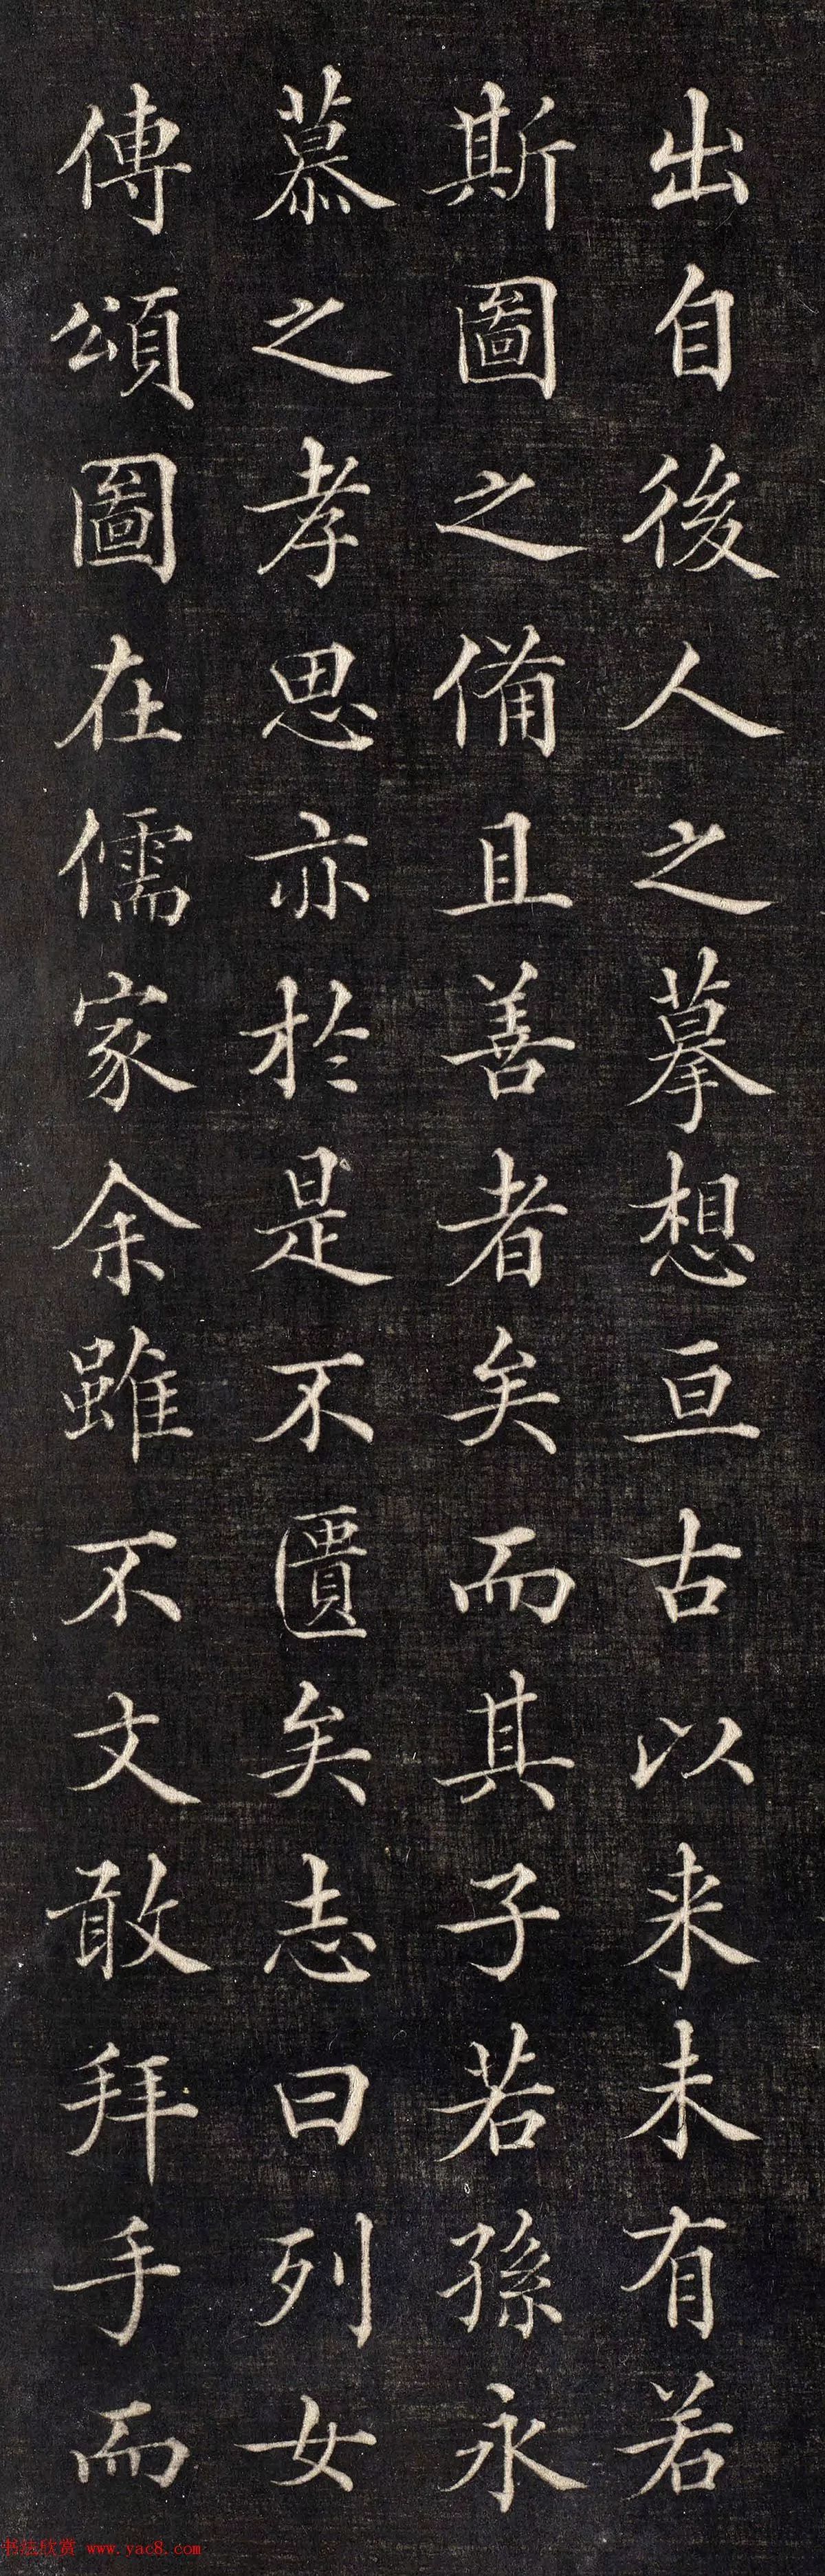 出自後人之摹想亘古以来未有若
斯圖之俻且善者矣而其子若孫永
慕之孝思亦於是不匱矣志曰列女
傳頌圖在儒家余雖不文敢拜手而
书法欣赏 www.yac8.com